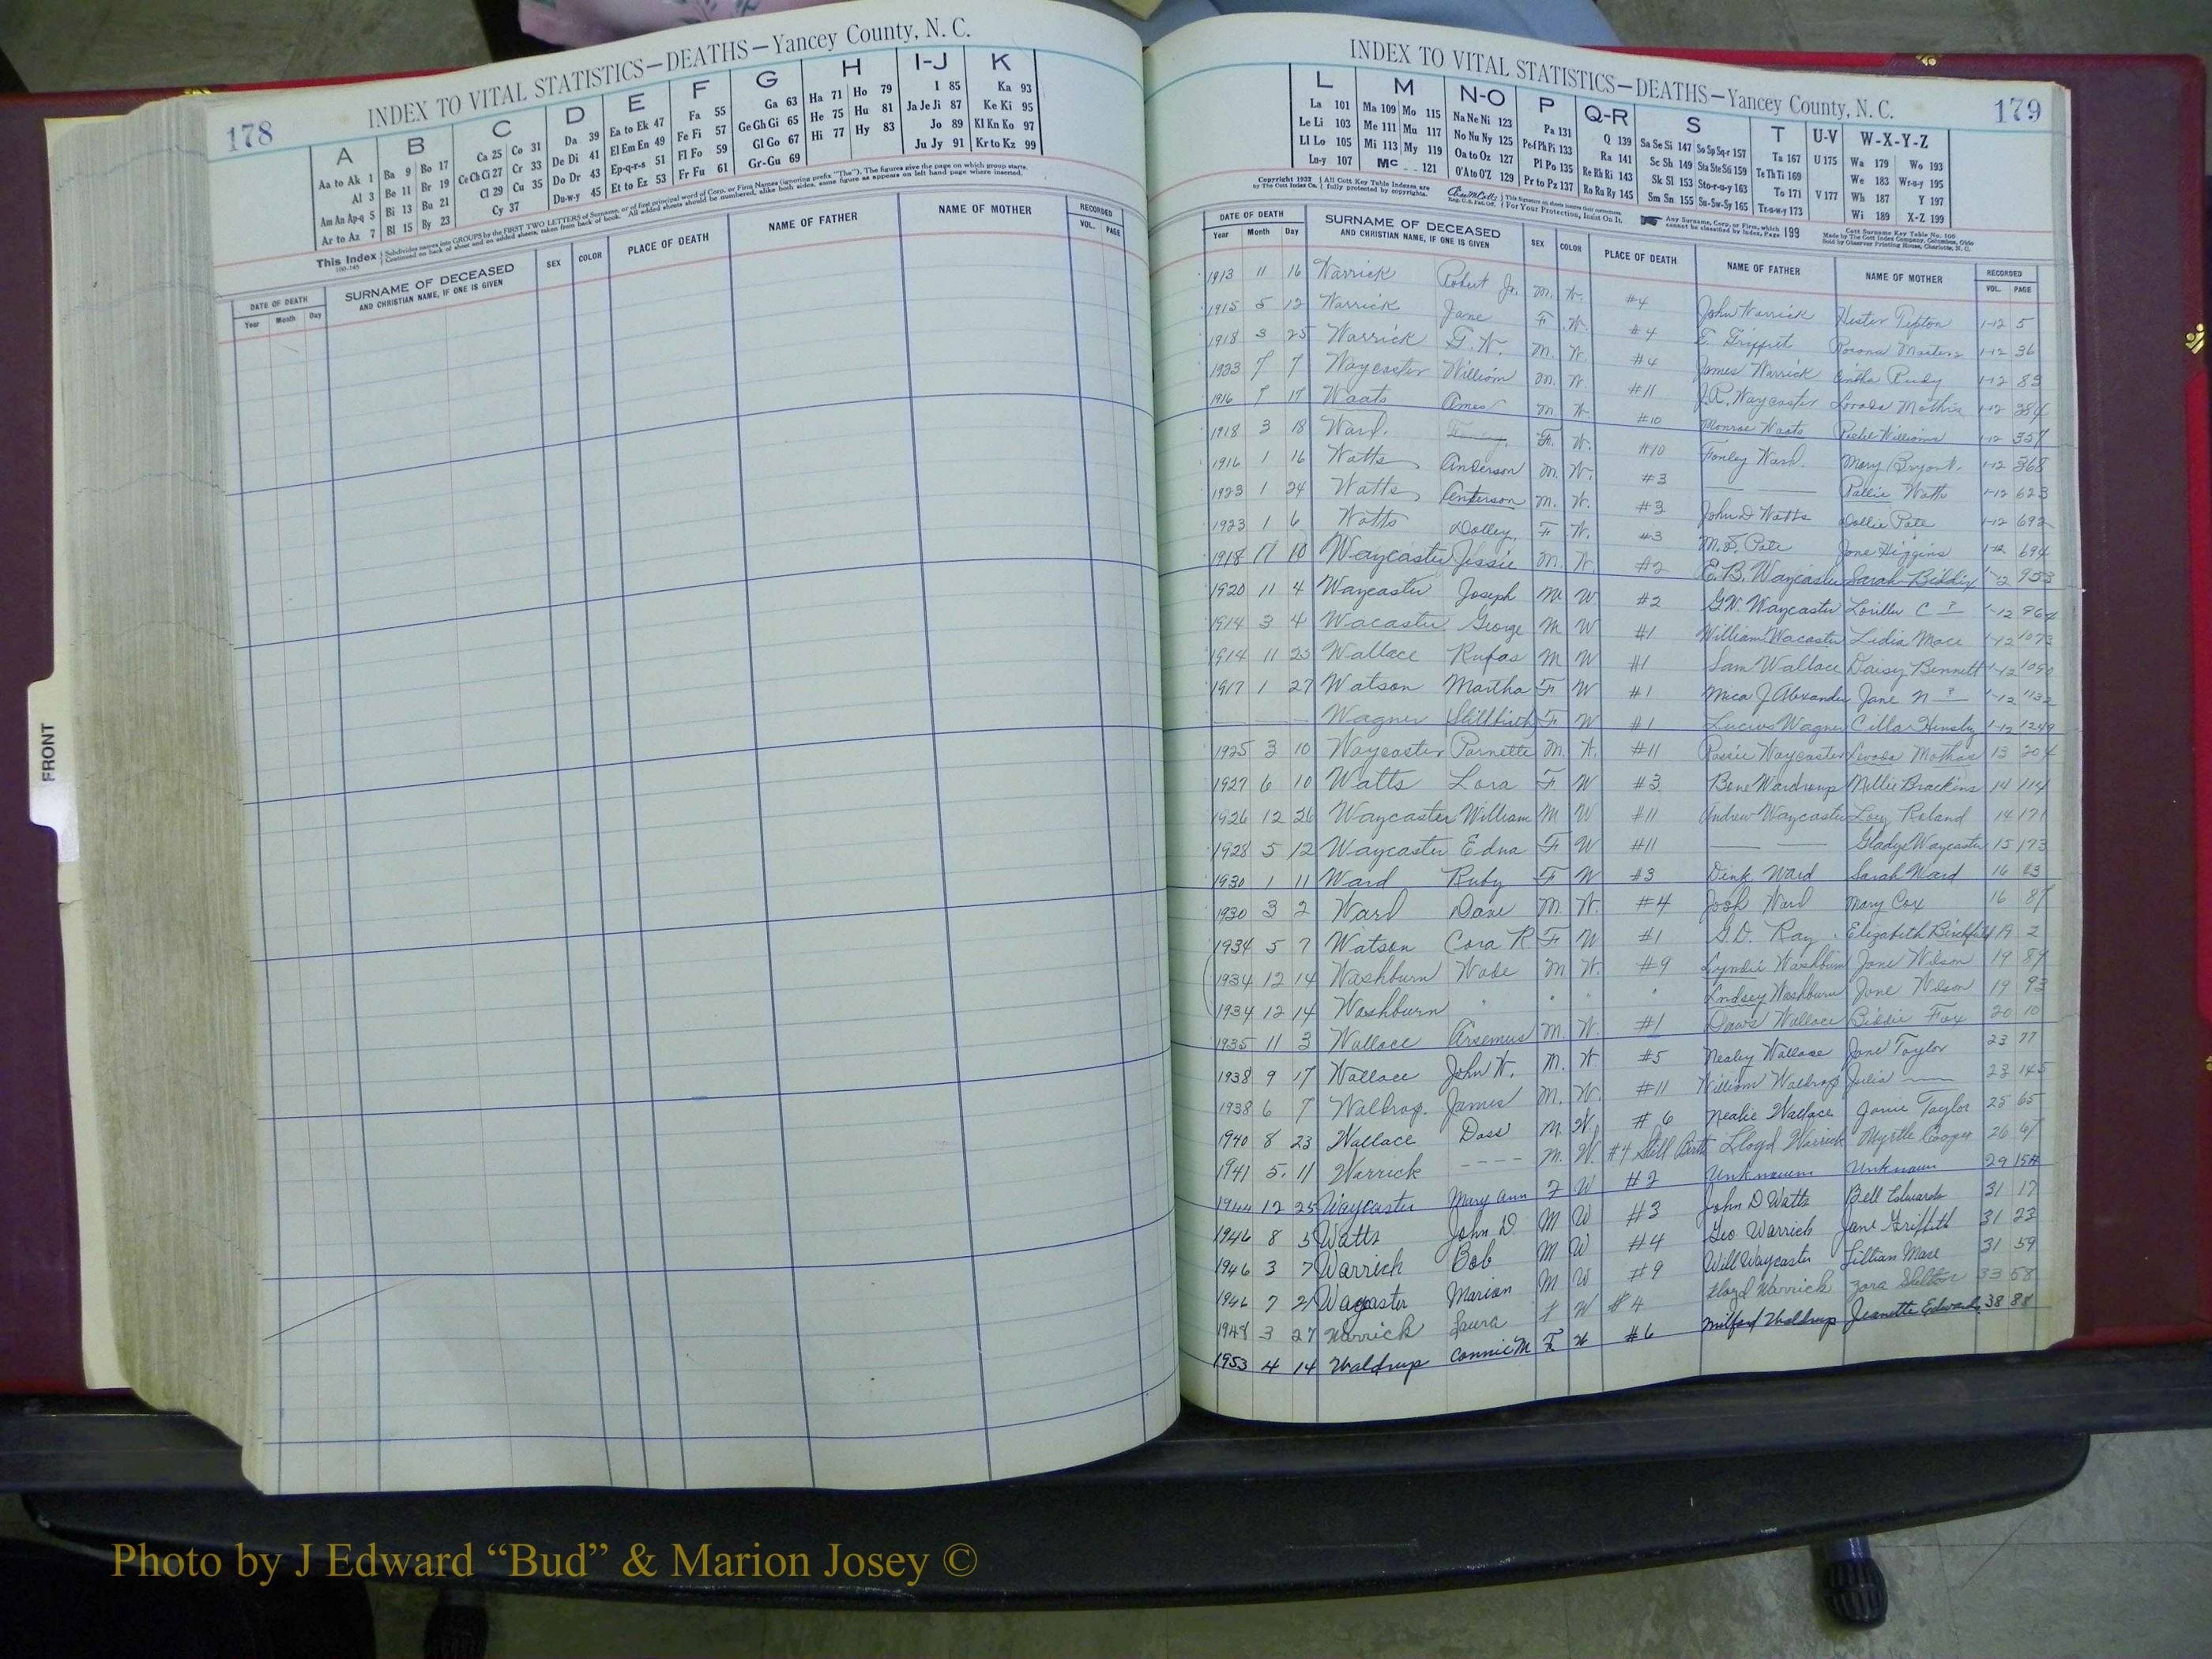 178
INDEX TO VITAL STATISTICS—DEATHS—Yancey County, N. C.
A B C D E F G H I-J K
Aa to Ak 1 Ba 9 Bo 17 Ca 25 Co 31 Da 39 Ea to Ek 47 Fa 55 Ga 63 Ha 71 Ho 79 I 85 Ka 93
Al 3 Be 11 Br 19 Ce Ch Ci 27 Cr 33 De Di 41 El Em En 49 Fe Fi 57 Ge Gh Gi 65 He 75 Hu 81 Ja Je Ji 87 Ke Ki 95
Am An Ap-q 5 Bi 13 Bu 21 Cl 29 Cu 35 Do Dr 43 Ep-q-r-s 51 Fl Fo 59 Gl Go 67 Hi 77 Hy 83 Jo 89 Kl Kn Ko 97
Ar to Az 7 Bl 15 By 23 Cy 37 Du-w-y 45 Et to Ez 53 Fr Fu 61 Gr-Gu 69 Ju Jy 91 Kr to Kz 99
This Index Subdivides names into GROUPS by the FIRST TWO LETTERS of Surname, or of first principal word of Corp. or Firm Names (ignoring prefix "The"). The figures give the page on which group starts.
Continued on back of sheet and on added sheets, taken from back of book. All added sheets should be numbered, alike both sides, same figure as appears on left hand page where inserted.
DATE OF DEATH SURNAME OF DECEASED AND CHRISTIAN NAME, IF ONE IS GIVEN SEX COLOR PLACE OF DEATH NAME OF FATHER NAME OF MOTHER RECORDED
Year Month Day VOL. PAGE
INDEX TO VITAL STATISTICS—DEATHS—Yancey County, N. C.
179
L M N-O P Q-R S T U-V W-X-Y-Z
La 101 Ma 109 Mo 115 Na Ne Ni 123 Pa 131 Q 139 Sa Se Si 147 So Sp Sq-r 157 Ta 167 U 175 Wa 179 Wo 193
Le Li 103 Me 111 Mu 117 No Nu Ny 125 Pe-f Ph Pi 133 Ra 141 Sc Sh 149 Sta Ste Sti 159 Te Th Ti 169 We 183 Wr-u-y 195
Ll Lo 105 Mi 113 My 119 Oa to Oz 127 Pl Po 135 Re Rh Ri 143 Sk Sl 153 Sto-r-u-y 163 To 171 V 177 Wh 187 Y 197
Lu-y 107 Mc 121 O'A to O'Z 129 Pr to Pz 137 Ro Ru Ry 145 Sm Sn 155 Su-Sw-Sy 165 Tr-u-w-y 173 Wi 189 X-Z 199
Copyright 1932 by The Cott Index Co. All Cott Key Table Indexes are fully protected by copyrights. For Your Protection, Insist On It. Any Surname, Corp. or Firm, which cannot be classified by Index, Page 199
Cott Surname Key Table No. 100 Made by The Cott Index Company, Columbus, Ohio Sold by Observer Printing House, Charlotte, N. C.
DATE OF DEATH SURNAME OF DECEASED AND CHRISTIAN NAME, IF ONE IS GIVEN SEX COLOR PLACE OF DEATH NAME OF FATHER NAME OF MOTHER RECORDED
Year Month Day VOL. PAGE
1913 11 16 Warrick Robert Jr. M. W. #4 John Warrick Hester Tipton 1-12 5
1915 5 12 Warrick Jane F W. #4 Griffit Masters 1-12 36
1918 3 25 Warrick G. W. M. W. #4 James Warrick 1-12 83
1923 7 7 Waycaster William M. W. #11 J.R. Waycaster Mathis 1-12 284
1916 7 17 Waats Amos M. W. #10 Monroe Waats Williams 1-12 357
1918 3 18 Ward. F. W. #10 Fonley Ward. Mary Bryant. 1-12 368
1916 1 16 Watts Anderson M. W. #3 — — Pallie Watts 1-12 623
1923 1 24 Watts Anderson M. W. #3 John D Watts Dollie Pate 1-12 692
1923 1 6 Watts Dolley, F W. #3 M.S. Pate Jane Higgins 1-12 694
1918 10 Waycaster Jessie M. W. #2 E.B. Waycaster Sarah Biddix 1-12 953
1920 11 4 Waycaster Joseph M W #2 G.W. Waycaster C ? — 1-12 964
1914 3 4 Wacaster George M W #1 William Wacaster Lidia Mace 1-12 1073
1914 11 23 Wallace Rufas M W #1 Sam Wallace Daisy Bennett 1-12 1090
1917 1 27 Watson Martha F W #1 Mica J Alexander Jane N ? — 1-12 1132
— — — Wagner Stillbirth F W #1 Lucius Wagner Cillar Hensley 1-12 1249
1925 3 10 Waycaster Parnette M. W. #11 Waycaster Levada Mathas 13 204
1927 6 10 Watts Lora F W #3 Bone Wardroup Millie Brackins 14 114
1926 12 26 Waycaster William M W #11 Andrew Waycaster Lucy Roland 14 171
1928 5 12 Waycaster Edna F W #11 — — Gladys Waycaster 15 173
1930 1 11 Ward Ruby F W #3 Dink Ward Sarah Ward 16 23
1930 3 2 Ward Dave M. W. #4 Josh Ward Mary Cox 16 87
1934 5 7 Watson Cora R F W #1 G.D. Ray Elizabeth Birchfield 19 2
1934 12 14 Washburn Wade M W. #9 Washburn Jane Wilson 19 89
1934 12 14 Washburn " " " " Lndsey Washburn Jane Wilson 19 93
1935 11 3 Wallace Arsemus M. W. #1 Daws Wallace Biddie Fox 20 10
1938 9 17 Wallace John W. M. W. #5 Nealey Wallace Jane Taylor 23 77
1938 6 7 Waldrop. James M. W. #11 William Waldrop Julia — 23 145
1940 8 23 Wallace Doss M. W. #6 Nealie Wallace Janie Taylor 25 65
1941 5. 11 Warrick - - - - M. W. #4 Still Birth Lloyd Warrick Myrtle Cooper 26 67
1944 12 25 Waycaster Mary Ann F W #2 Unknown Unknown 29 154
1946 8 5 Watts John D. M W #3 John D Watts Bell Edwards 31 17
1946 3 7 Warrick Bob M W #4 Geo Warrick Jane Griffith 31 23
1946 7 21 Wacaster Marion M W #9 Will Waycaster Lillian Mace 31 59
1948 3 27 Warrick Laura F W #4 Lloyd Warrick Zora Shelton 33 58
1953 4 14 Waldrup Connie M F W #6 Milford Waldrup Jeanette Edwards 38 88
FRONT
Photo by J Edward “Bud” & Marion Josey ©